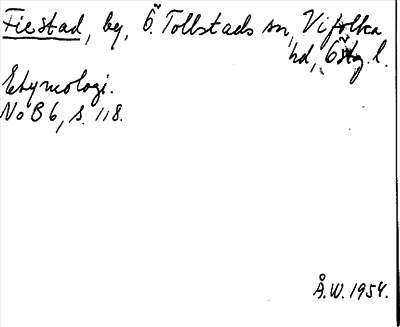 Fiestad, by, Ö. Tollstads sn, Vifolka
hd, Östg. l.
Etymologi.
NoB 6, s. 118.
Å.W. 1954.